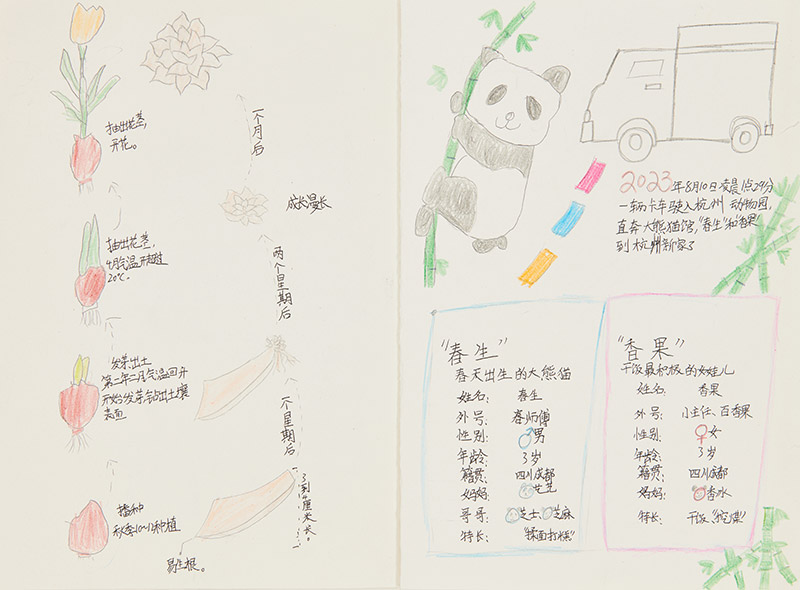 抽出花茎,
开花。
一个月后
成长漫长
抽出花茎,
4月气温不超过
20℃。
两个星期后
发芽出土
第二年二月气温回升
开始发芽钻出土壤
表面
一个星期后
播种
秋季10~11种植
3到4厘米长。
易生根。
2023年8月10日凌晨1点29分
一辆卡车驶入杭州动物园,
直奔大熊猫馆,"春生"和"香果"
到杭州新家了
"春生"
春天出生的大熊猫
姓名: 春生
外号: 春师傅
性别: ♂男
年龄: 3岁
籍贯: 四川成都
妈妈: 芝芝
哥哥: 芝士、芝麻
特长: "揉面打糕"
"香果"
干饭最积极的女娃儿
姓名: 香果
外号: 小主任、百香果
性别: ♀女
年龄: 3岁
籍贯: 四川成都
妈妈: 香冰
特长: 干饭"挖煤"